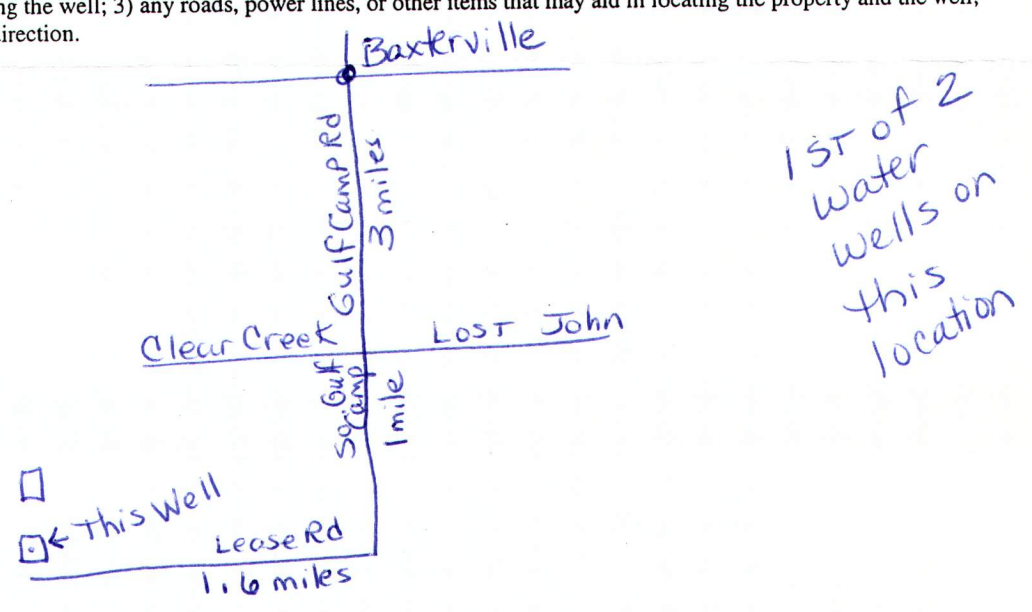 ng the well; 3) any roads, power lines, or other items that may aid in locating the property and the well;
irection.
Baxterville
Gulf Camp Rd
3 miles
1 ST of 2
water
wells on
this
location
Clear Creek
LOST John
So. Gulf
Camp
1 mile
This Well
Lease Rd
1.6 miles